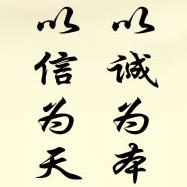 以诚为本
以信为天